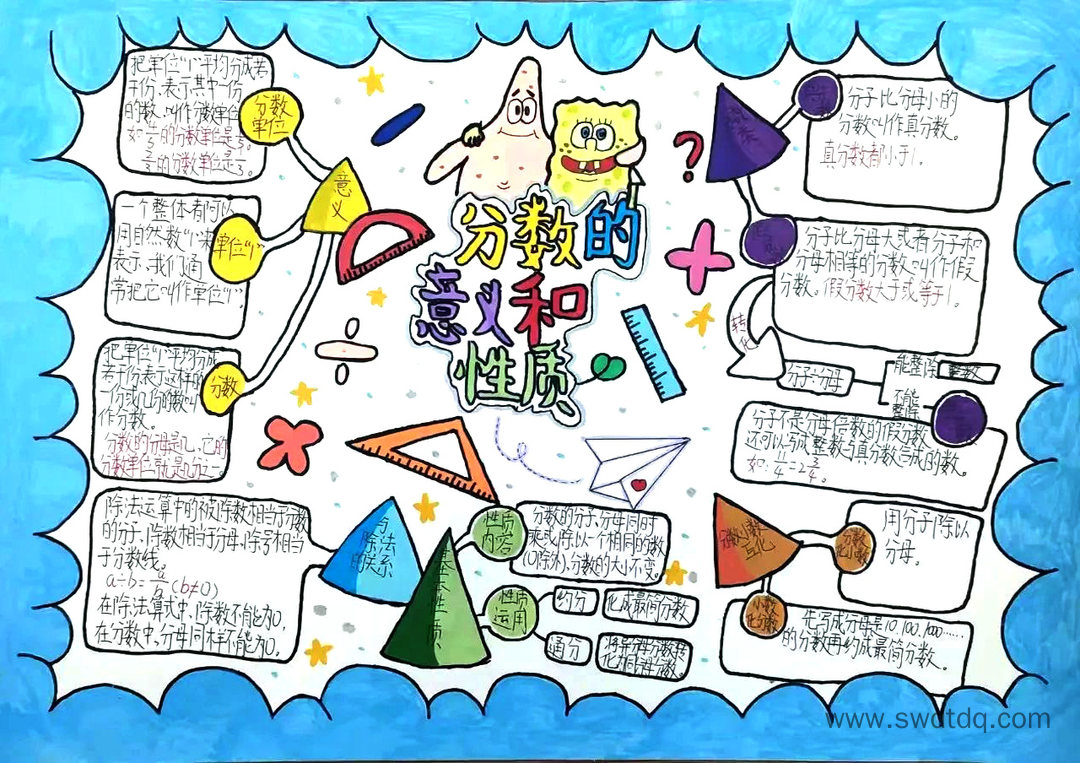 分数的
意义和
性质
意义
分数
单位
把单位"1"平均分成若
干份,表示其中一份
的数,叫作分数单位
的分数单位是
的分数单位是
单位"1"
一个整体都可以
用自然数"1"来
表示,我们通
常把它叫作单位"1"。
分数
把单位"1"平均分成
若干份,表示这样的
一份或几份的数叫
作分数。
分数的分母是几,它的
分数单位就是几分之一
与
除法
的关系
除法运算中的被除数相当于分数
的分子,除数相当于分母,除号相当
于分数线。
a÷b=a/b(b≠0)
在除法算式中,除数不能为0,
在分数中,分母同样不能为0。
基本性质
性质
内容
分数的分子、分母同时
乘或除以一个相同的数
(0除外),分数的大小不变。
性质
运用
约分
化成最简分数
通分
分子比分母小的
分数叫作真分数。
真分数都小于1。
分子比分母大或者分子和
分母相等的分数叫作假
分数。假分数大于或等于1。
转化
分子÷分母
能整除
整数
不能
整除
分子不是分母倍数的假分数
还可以写成整数与真分数合成的数。
如:11/4=2 3/4。
分数小数
互化
分数
化小数
用分子除以
分母。
小数
化分数
先写成分母是10,100,1000……
的分数再约成最简分数。
www.swdtdq.com